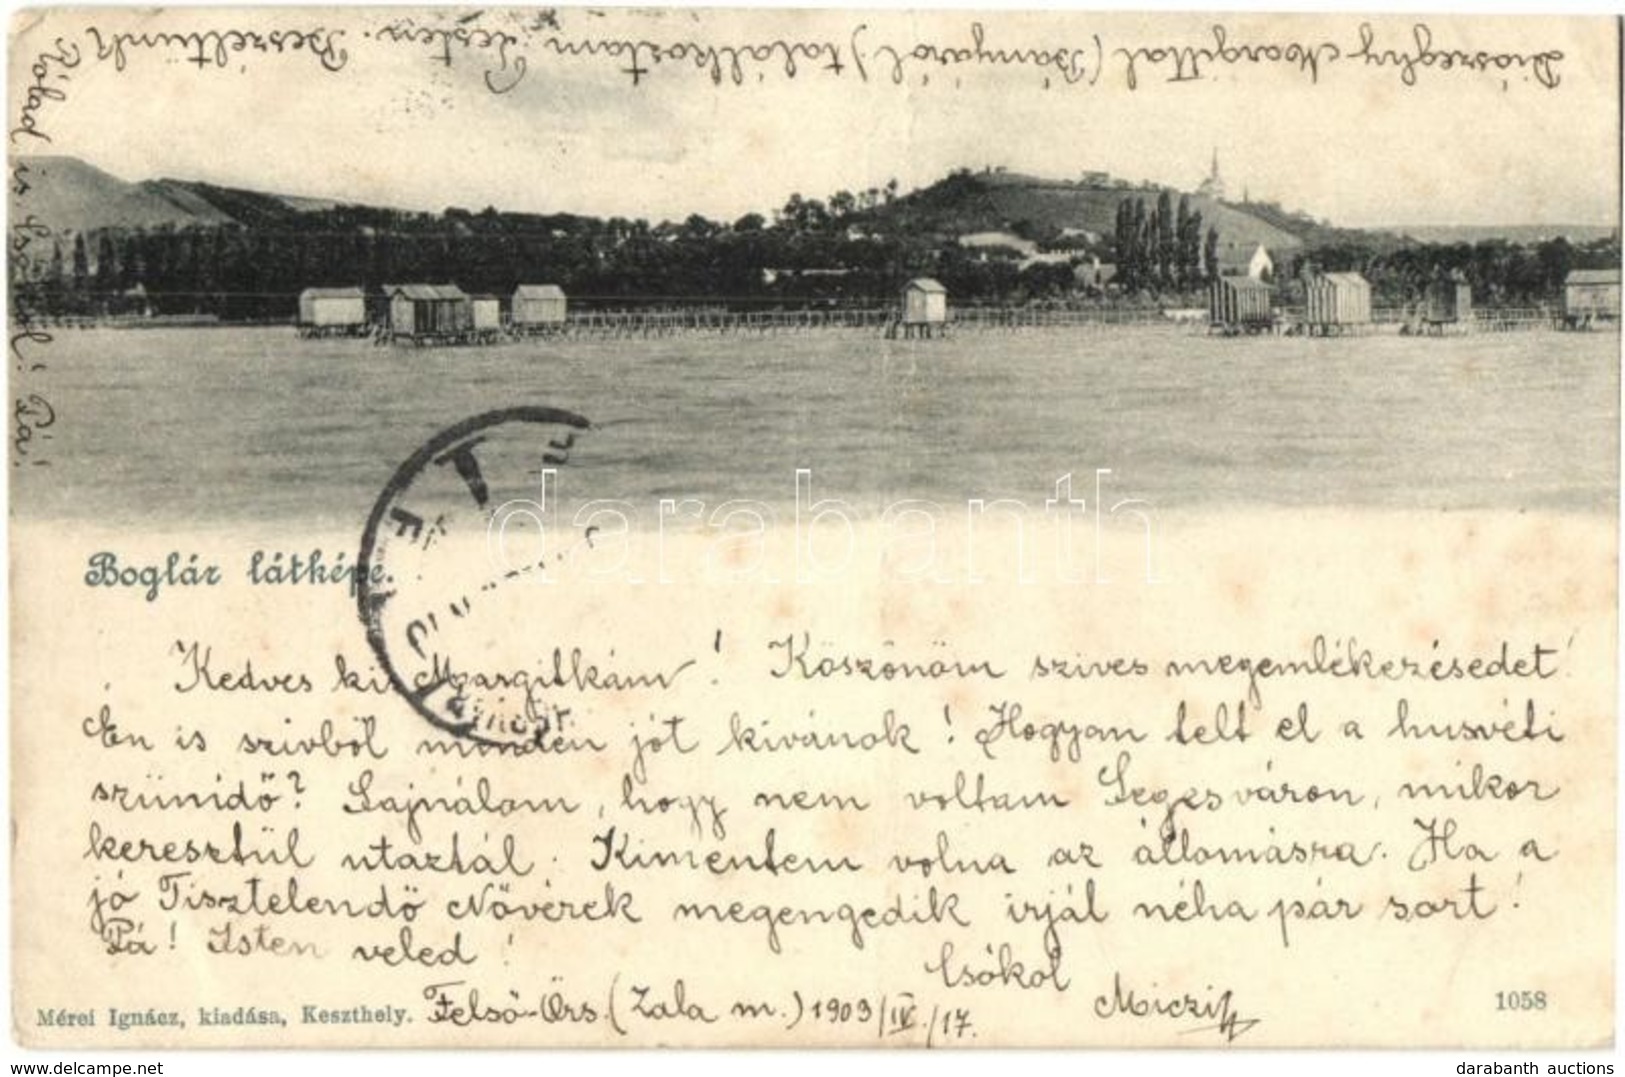 Diószeghy Margittal (Bányáról) találkoztam Pesten. Beszéltünk
Rólad is. Csókol! Pá!
Boglár látképe.
Kedves kis Margitkám! Köszönöm szives megemlékezésedet!
Én is szivből minden jót kivánok! Hogyan telt el a husvéti
szünidő? Sajnálom, hogy nem voltam Segesváron, mikor
keresztül utaztál. Kimentem volna az állomásra. Ha a
jó Tisztelendő Nővérek megengedik irjál néha pár sort!
Pá! Isten veled!
Csókol
Miczi
Felső-Örs. (Zala m.) 1903/IV./17.
Mérei Ignácz, kiadása, Keszthely.
1058
darabanth
www.delcampe.net
darabanth auctions